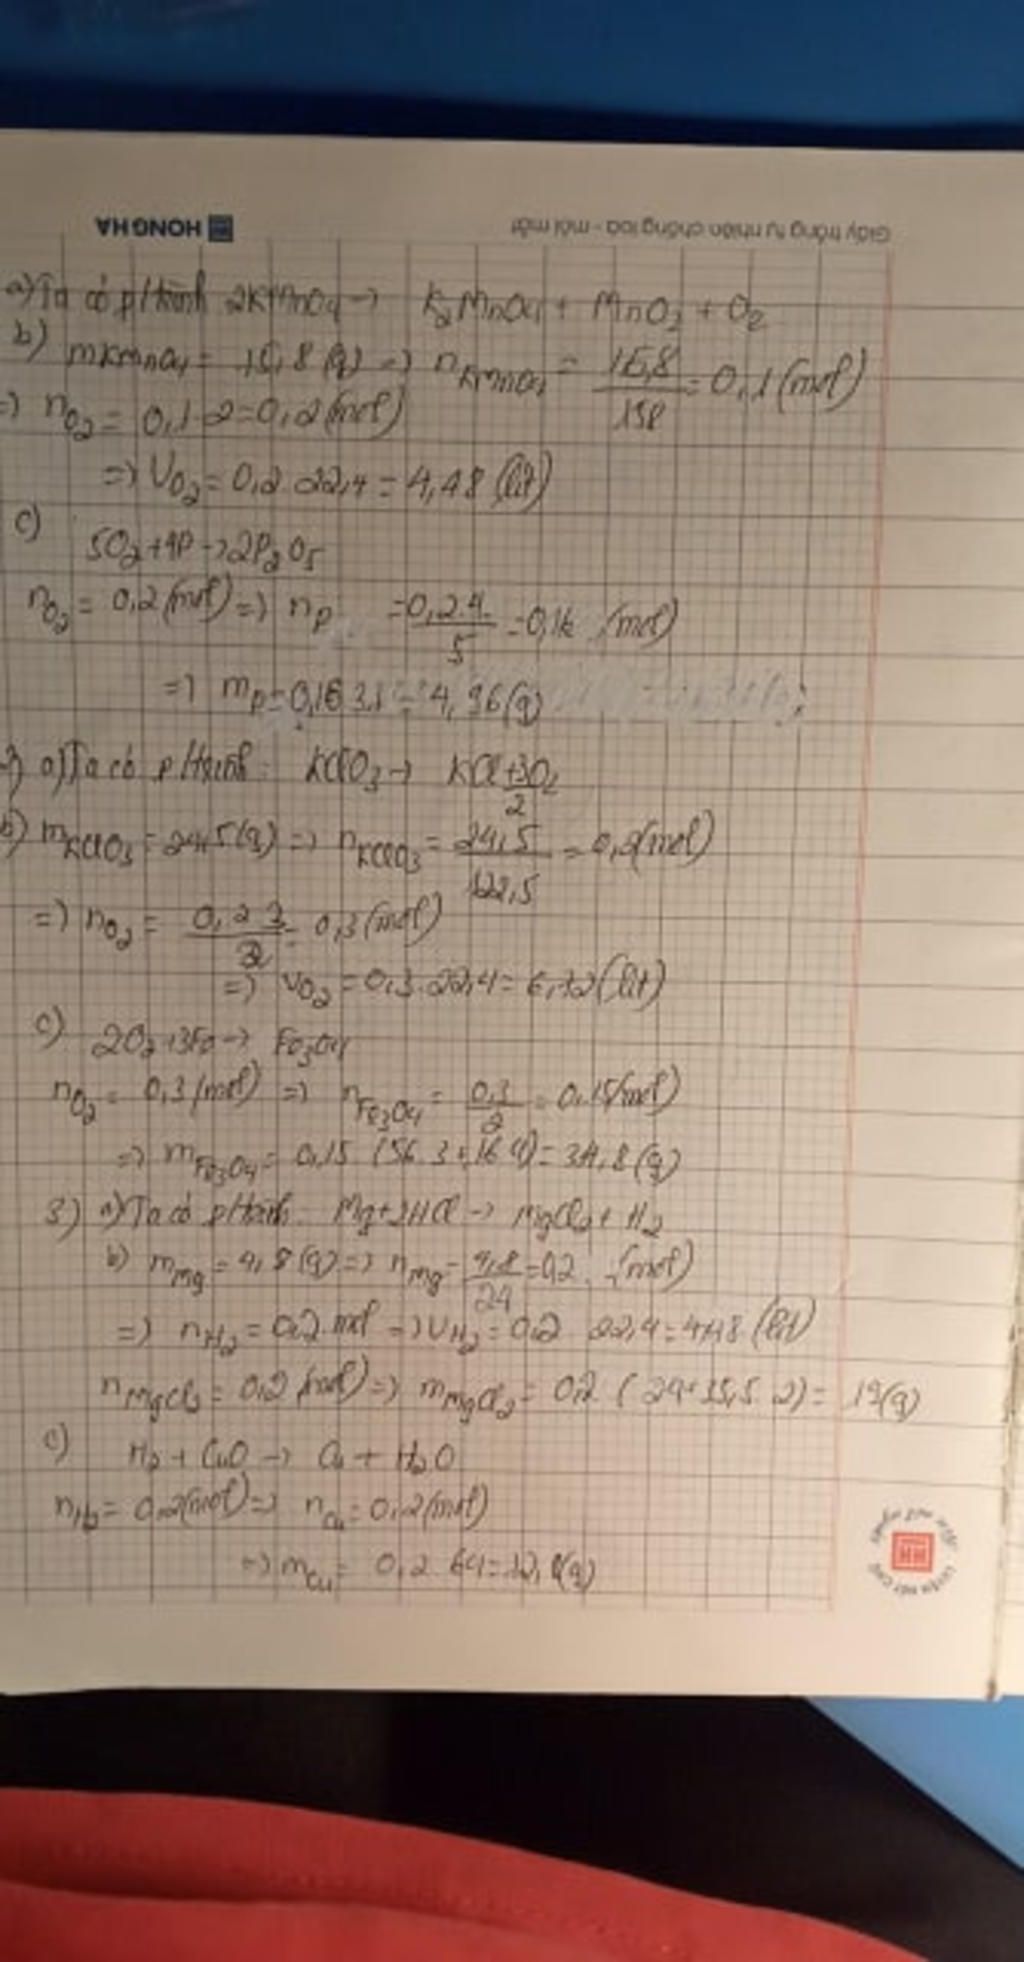 HONG HA
Giấy trắng tự nhiên chống loá - mỏi mắt
a) Ta có p/trình 2KMnO4 → K2MnO4 + MnO2 + O2
b) mKMnO4 = 15,8 (g) => nKMnO4 = 15,8/158 = 0,1 (mol)
=> nO2 = 0,1.2 = 0,2 (mol)
=> VO2 = 0,2.22,4 = 4,48 (lít)
c)
5O2 + 4P → 2P2O5
nO2 = 0,2 (mol) => nP = 0,2.4/5 = 0,16 (mol)
=> mP = 0,16.31 = 4,96 (g)
a) Ta có p/trình: KClO3 → KCl + 3O2/2
b) mKClO3 = 24,5 (g) => nKClO3 = 24,5/122,5 = 0,2 (mol)
=> nO2 = 0,2.3/2 = 0,3 (mol)
=> VO2 = 0,3.22,4 = 6,72 (lít)
c) 2O2 + 3Fe → Fe3O4
nO2 = 0,3 (mol) => nFe3O4 = 0,3/2 = 0,15 (mol)
=> mFe3O4 = 0,15 (56.3+16.4) = 34,8 (g)
3) a) Ta có p/trình: Mg + 2HCl → MgCl2 + H2
b) mMg = 4,8 (g) => nMg = 4,8/24 = 0,2 (mol)
=> nH2 = 0,2 mol => VH2 = 0,2 22,4 = 4,48 (lít)
nMgCl2 = 0,2 (mol) => mMgCl2 = 0,2 (24+35,5.2) = 19 (g)
c) H2 + CuO → Cu + H2O
nH2 = 0,2 (mol) => nCu = 0,2 (mol)
=> mCu = 0,2.64 = 12,8 (g)